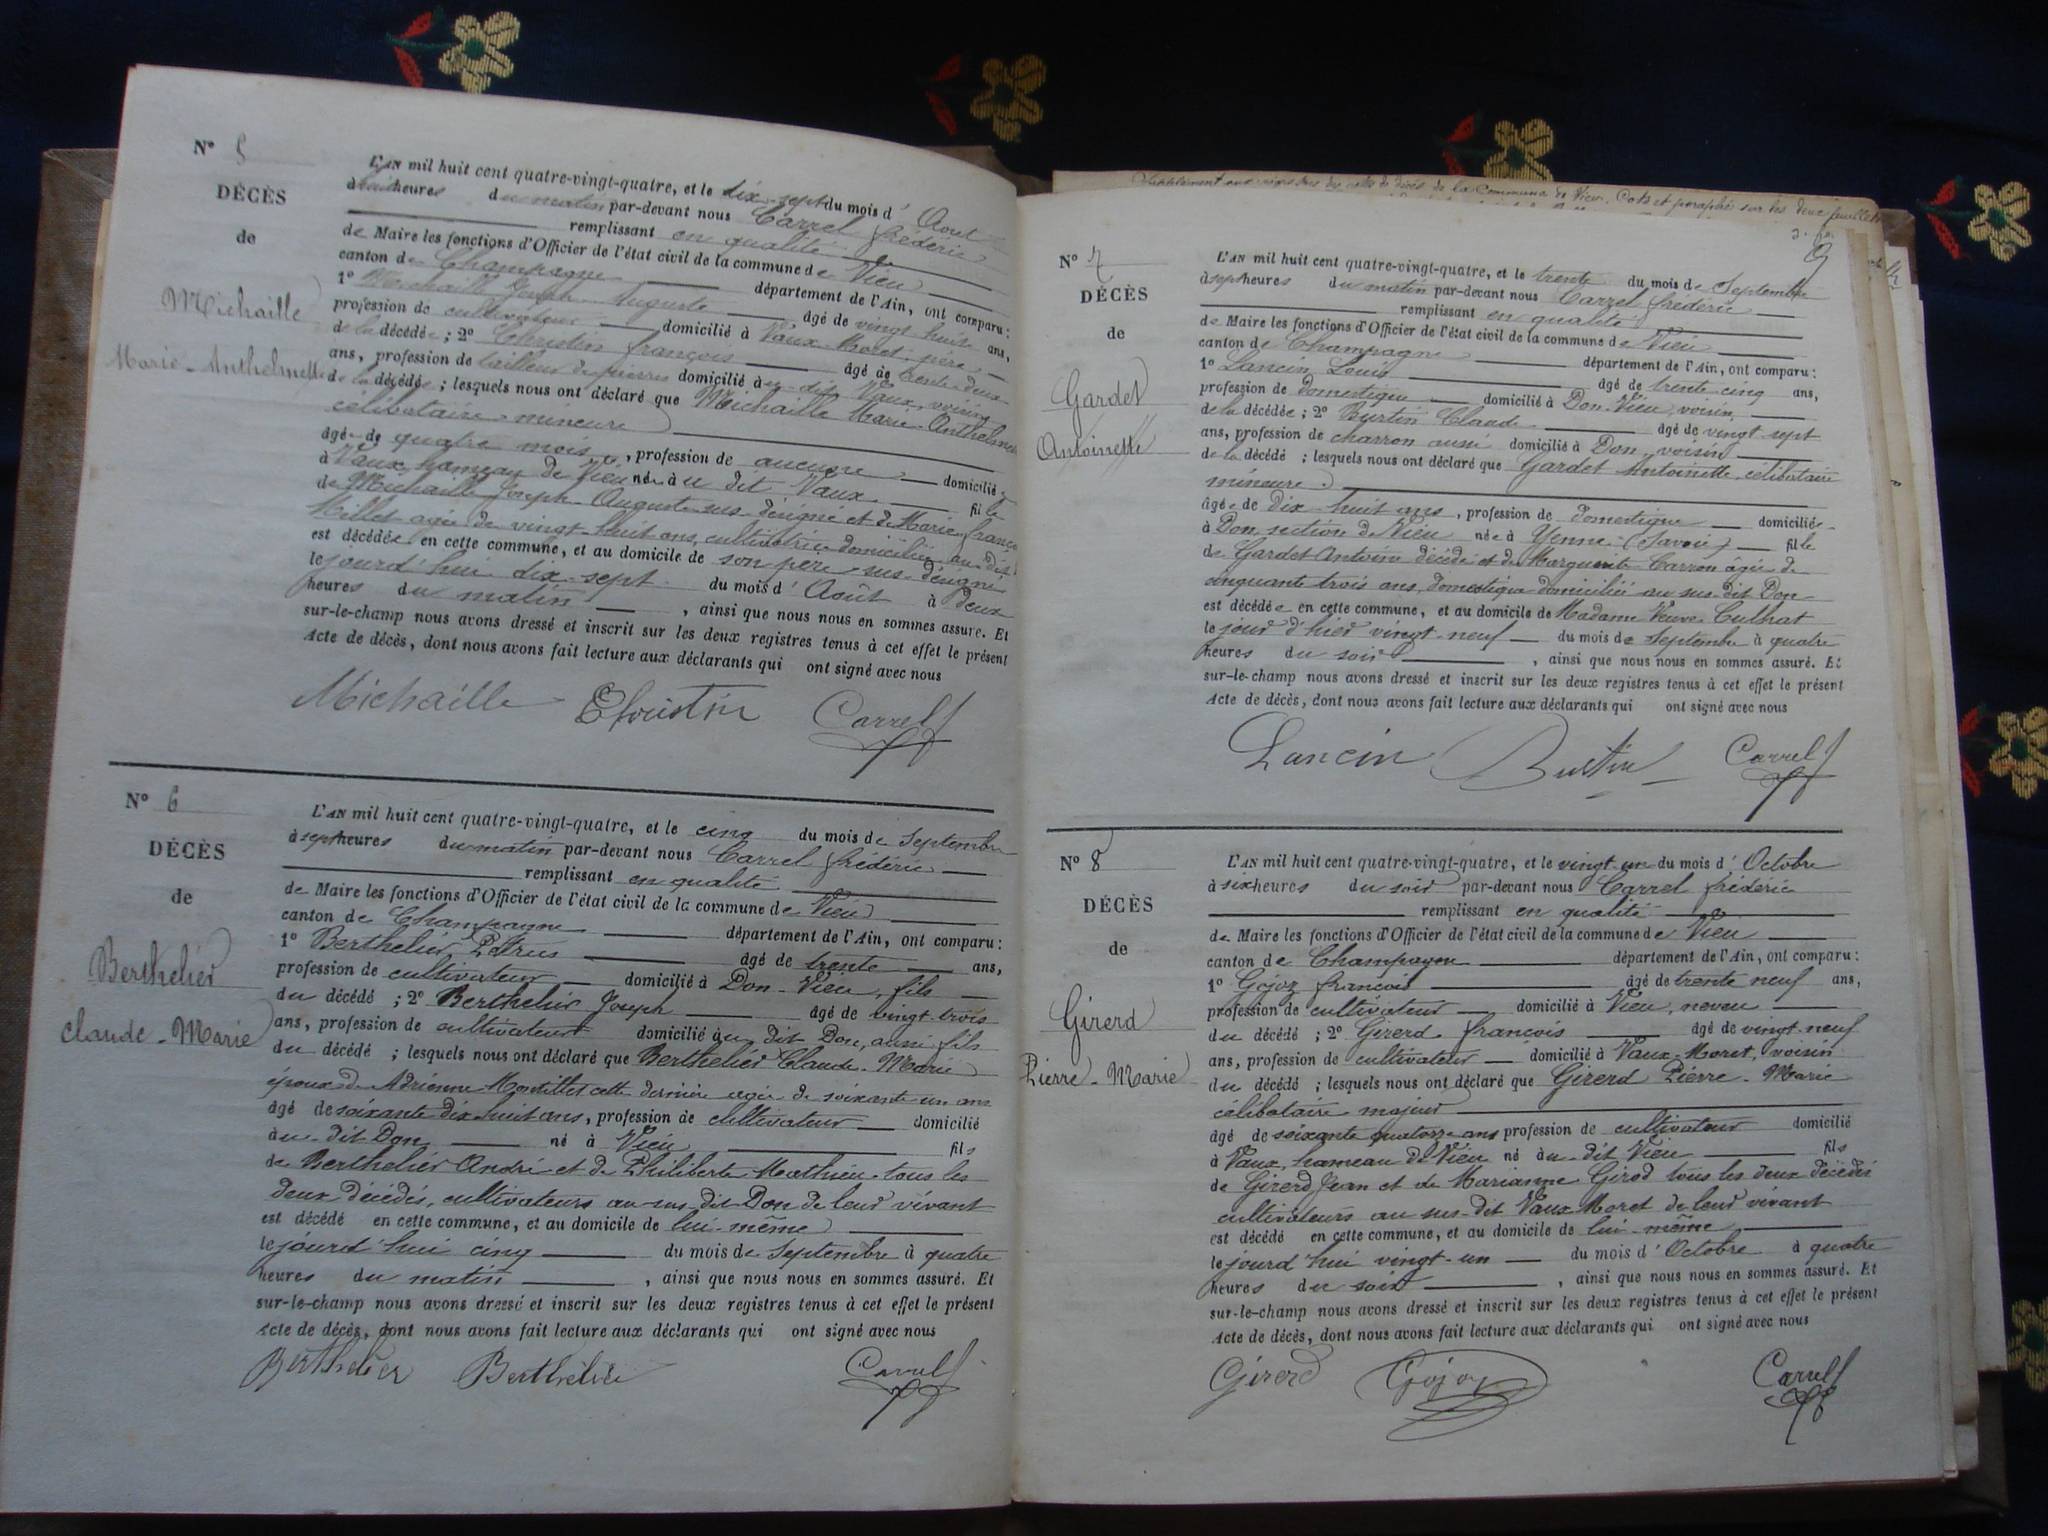 N° 5
DÉCÈS
de
Michaille
Marie-Anthelmette
L'AN mil huit cent quatre-vingt-quatre, et le dix-sept du mois d' Août
à heures du matin par-devant nous Carrel frédéric
remplissant en qualité
de Maire les fonctions d'Officier de l'état civil de la commune de Vieu
canton de Champagne département de l'Ain, ont comparu :
1° Michaille Joseph Auguste âgé de vingt huit ans,
profession de cultivateur domicilié à Vaux-Moret, père
de la décédée ; 2° Christin françois âgé de trente deux
ans, profession de tailleur de pierres domicilié à dit Vaux, voisin
de la décédée ; lesquels nous ont déclaré que Michaille Marie-Anthelmette
célibataire mineure
âgée de quatre mois, profession de aucune domiciliée
à Vaux hameau de Vieu née à u dit Vaux fille
de Michaille Joseph-Auguste sus-désigné et de Marie françoise
Millet agée de vingt-huit ans, cultivatrice domiciliée au dit
est décédée en cette commune, et au domicile de son père sus-désigné
le jourd'hui dix-sept du mois d' Août à deux
heures du matin , ainsi que nous nous en sommes assuré. Et
sur-le-champ nous avons dressé et inscrit sur les deux registres tenus à cet effet le présent
Acte de décès, dont nous avons fait lecture aux déclarants qui ont signé avec nous
Michaille Christin Carrel
N° 6
DÉCÈS
de
Berthelier
Claude-Marie
L'AN mil huit cent quatre-vingt-quatre, et le cinq du mois de Septembre
à sept heures du matin par-devant nous Carrel frédéric
remplissant en qualité
de Maire les fonctions d'Officier de l'état civil de la commune de Vieu
canton de Champagne département de l'Ain, ont comparu :
1° Berthelier Pétrus âgé de trente ans,
profession de cultivateur domicilié à Don-Vieu, fils
du décédé ; 2° Berthelier Joseph âgé de vingt-trois
ans, profession de cultivateur domicilié à u dit Don, aussi fils
du décédé ; lesquels nous ont déclaré que Berthelier Claude-Marie
époux de Adrienne Montillet cette dernière agée de soixante un ans
âgé de soixante dix huit ans, profession de cultivateur domicilié
à u-dit Don né à Vieu fils
de Berthelier André et de Philiberte Mathieu tous les
deux décédés, cultivateurs au sus-dit Don de leur vivant
est décédé en cette commune, et au domicile de lui-même
le jourd'hui cinq du mois de Septembre à quatre
heures du matin , ainsi que nous nous en sommes assuré. Et
sur-le-champ nous avons dressé et inscrit sur les deux registres tenus à cet effet le présent
Acte de décès, dont nous avons fait lecture aux déclarants qui ont signé avec nous
Berthelier Berthelier Carrel
Supplément aux registres des actes de décès de la Commune de Vieu. Coté et paraphé sur les deux feuillets
N° 7
DÉCÈS
de
Gardet
Antoinette
L'AN mil huit cent quatre-vingt-quatre, et le trente du mois de Septembre
à sept heures du matin par-devant nous Carrel frédéric
remplissant en qualité
de Maire les fonctions d'Officier de l'état civil de la commune de Vieu
canton de Champagne département de l'Ain, ont comparu :
1° Lancin Louis âgé de trente-cinq ans,
profession de domestique domicilié à Don-Vieu, voisin
de la décédée ; 2° Burtin Claude âgé de vingt-sept
ans, profession de charron aussi domicilié à Don, voisin
de la décédé ; lesquels nous ont déclaré que Gardet Antoinette, célibataire
mineure
âgée de dix-huit ans, profession de domestique domiciliée
à Don section de Vieu née à Yenne (Savoie) fille
de Gardet Antoine décédé et de Marguerite Carron agée de
cinquante trois ans, domestique domiciliée au sus-dit Don
est décédée en cette commune, et au domicile de Madame Veuve Culhat
le jour d'hier vingt-neuf du mois de septembre à quatre
heures du soir , ainsi que nous nous en sommes assuré. Et
sur-le-champ nous avons dressé et inscrit sur les deux registres tenus à cet effet le présent
Acte de décès, dont nous avons fait lecture aux déclarants qui ont signé avec nous
Lancin Burtin Carrel
N° 8
DÉCÈS
de
Girerd
Pierre-Marie
L'AN mil huit cent quatre-vingt-quatre, et le vingt-un du mois d' Octobre
à six heures du soir par-devant nous Carrel frédéric
remplissant en qualité
de Maire les fonctions d'Officier de l'état civil de la commune de Vieu
canton de Champagne département de l'Ain, ont comparu :
1° Gojoz françois âgé de trente neuf ans,
profession de cultivateur domicilié à Vieu, neveu
du décédé ; 2° Girerd françois âgé de vingt-neuf
ans, profession de cultivateur domicilié à Vaux-Moret, voisin
du décédé ; lesquels nous ont déclaré que Girerd Pierre-Marie
célibataire majeur
âgé de soixante quatorze ans profession de cultivateur domicilié
à Vaux, hameau de Vieu né à u-dit Vieu fils
de Girerd Jean et de Marianne Girod tous les deux décédés
cultivateurs au sus-dit Vaux Moret de leur vivant
est décédé en cette commune, et au domicile de lui-même
le jourd'hui vingt-un du mois d' Octobre à quatre
heures du soir , ainsi que nous nous en sommes assuré. Et
sur-le-champ nous avons dressé et inscrit sur les deux registres tenus à cet effet le présent
Acte de décès, dont nous avons fait lecture aux déclarants qui ont signé avec nous
Girerd Gojoz Carrel